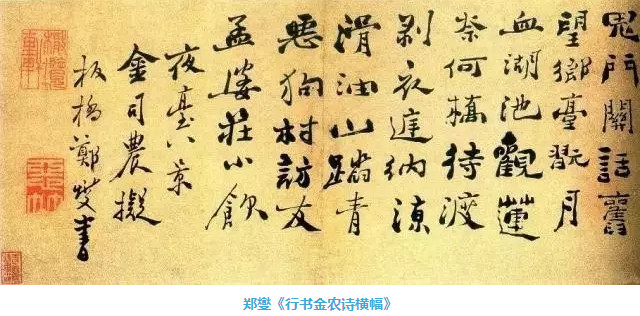 鬼門關話舊
望鄉臺翫月
血湖池觀蓮
柰何橋待渡
剥衣庭納涼
滑油山蹋青
悪狗村訪友
孟婆莊小飲
夜臺八景
金司農擬
板橋鄭燮書
郑燮《行书金农诗横幅》